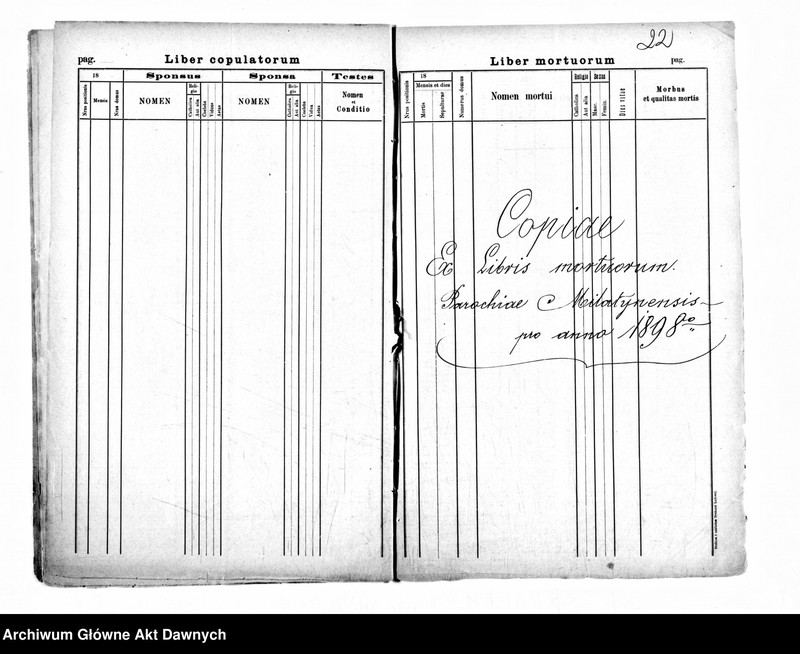 pag.
Liber copulatorum
18
Sponsus
Sponsa
Testes
Nrus positionis
Mensis
Nrus domus
NOMEN
Reli-
gio
Catholica
Aut alia
Caelebs
Viduus
Aetas
NOMEN
Reli-
gio
Catholica
Aut alia
Caelebs
Vidua
Aetas
Nomen
et
Conditio
22
Liber mortuorum
pag.
Nrus positionis
18
Mensis et dies
Mortis
Sepulturae
Numerus domus
Nomen mortui
Religio
Catholica
Aut alia
Sexus
Masc.
Femin.
Dies vitae
Morbus
et qualitas mortis
Copiae
Ex Libris mortuorum.
Parochiae Milatynensis
pro anno 1898º
Archiwum Główne Akt Dawnych